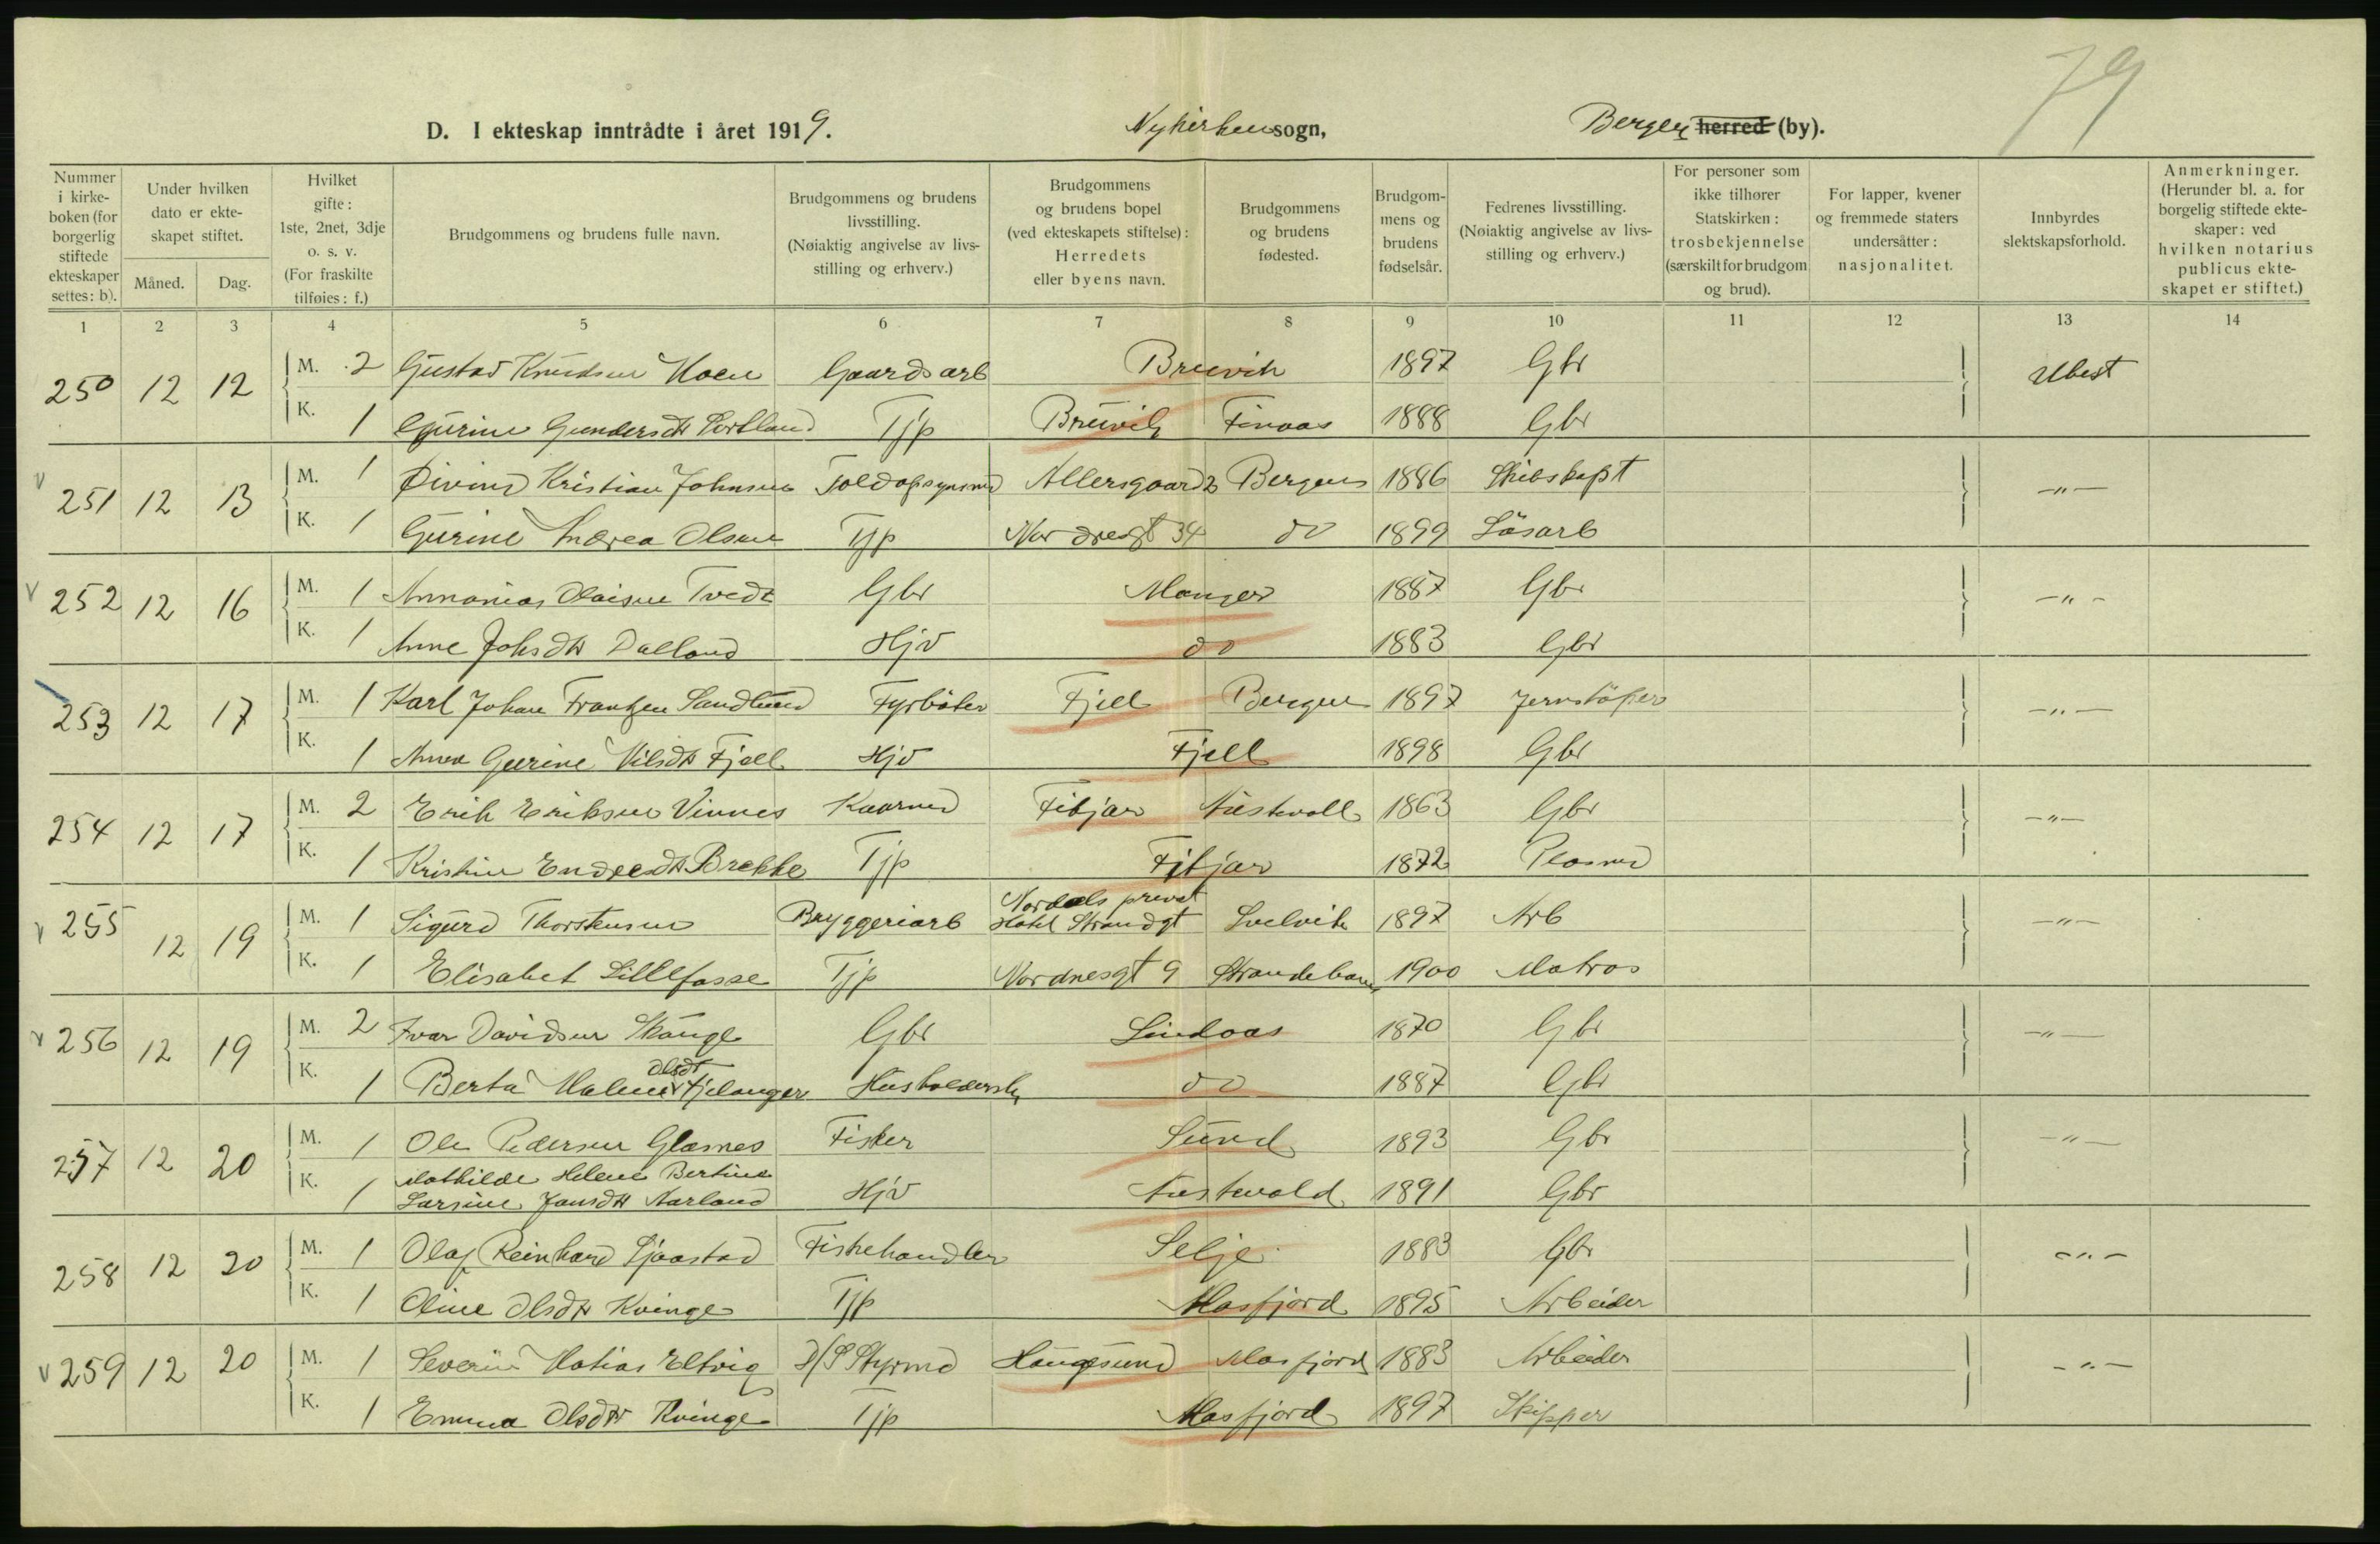 79
D. I ekteskap inntrådte i året 1919. Nykirken sogn, Bergen herred (by).
Nummer i kirkeboken (for borgerlig stiftede ekteskaper settes: b).
Under hvilken dato er ekteskapet stiftet.
Måned. Dag.
Hvilket gifte: 1ste, 2net, 3dje o. s. v. (For fraskilte tilføies: f.)
Brudgommens og brudens fulle navn.
Brudgommens og brudens livsstilling. (Nøiaktig angivelse av livsstilling og erhverv.)
Brudgommens og brudens bopel (ved ekteskapets stiftelse): Herredets eller byens navn.
Brudgommens og brudens fødested.
Brudgommens og brudens fødselsår.
Fedrenes livsstilling. (Nøiaktig angivelse av livsstilling og erhverv.)
For personer som ikke tilhører Statskirken: trosbekjennelse (særskilt for brudgom og brud).
For lapper, kvener og fremmede staters undersåtter: nasjonalitet.
Innbyrdes slektskapsforhold.
Anmerkninger. (Herunder bl. a. for borgelig stiftede ekteskaper: ved hvilken notarius publicus ekteskapet er stiftet.)
1 2 3 4 5 6 7 8 9 10 11 12 13 14
250 12 12 M. 2 Gustav Knudsen Gaardsarb Bruvik 1897 Gbr Ubest
K. 1 Gurine Gundersdtr Tjp Bruvik Finaas 1888 Gbr
251 12 13 M. 1 Øivind Kristian Johnsen Toldopsynsmd Allersgaard 2 Bergen 1886 Skibskapt —"—
K. 1 Gurine Andrea Olsen Tjp Nordresgt 34 do 1899 Løsarb
252 12 16 M. 1 Annanias Olaisen Tvedt Gbr Manger 1887 Gbr —"—
K. 1 Anne Johsdtr Dalland Hjv do 1883 Gbr
253 12 17 M. 1 Karl Johan Frantzen Sandlund Fyrbøter Fjell Bergen 1897 Jernstøper —"—
K. 1 Anna Gurine Nilsdtr Fjell Hjv Fjell 1898 Gbr
254 12 17 M. 2 Erik Eriksen Vinnes Kaarmd Fitjar Austevoll 1863 Gbr —"—
K. 1 Kristine Endresdtr Brekke Tjp Fitjar 1872 Plasmd
255 12 19 M. 1 Sigurd Thorstensen Bryggeriarb Nordals privat Hotel Strandgt Svelvik 1897 Arb —"—
K. 1 Elisabet Lillefosse Tjp Nordnesgt 9 Strandebarm 1900 Matros
256 12 19 M. 2 Ivar Davidsen Skauge Gbr Lindaas 1870 Gbr —"—
K. 1 Berta Malene Olsdt Fjelanger Husholderske do 1887 Gbr
257 12 20 M. 1 Ole Pedersen Glæsnes Fisker Sund 1893 Gbr —"—
K. 1 Mathilde Helene Bertine
Larsine Jansdtr Aarland Hjv Austevold 1891 Gbr
258 12 20 M. 1 Olaf Reinhard Sjaastad Fiskehandler Selje 1883 Gbr —"—
K. 1 Oline Olsdtr Kvinge Tjp Masfjord 1895 Arbeider
259 12 20 M. 1 Severin Matias Eltvig D/S Styrmd Haugesund Masfjord 1883 Arbeider —"—
K. 1 Emma Olsdtr Kvinge Tjp Masfjord 1897 Skipper